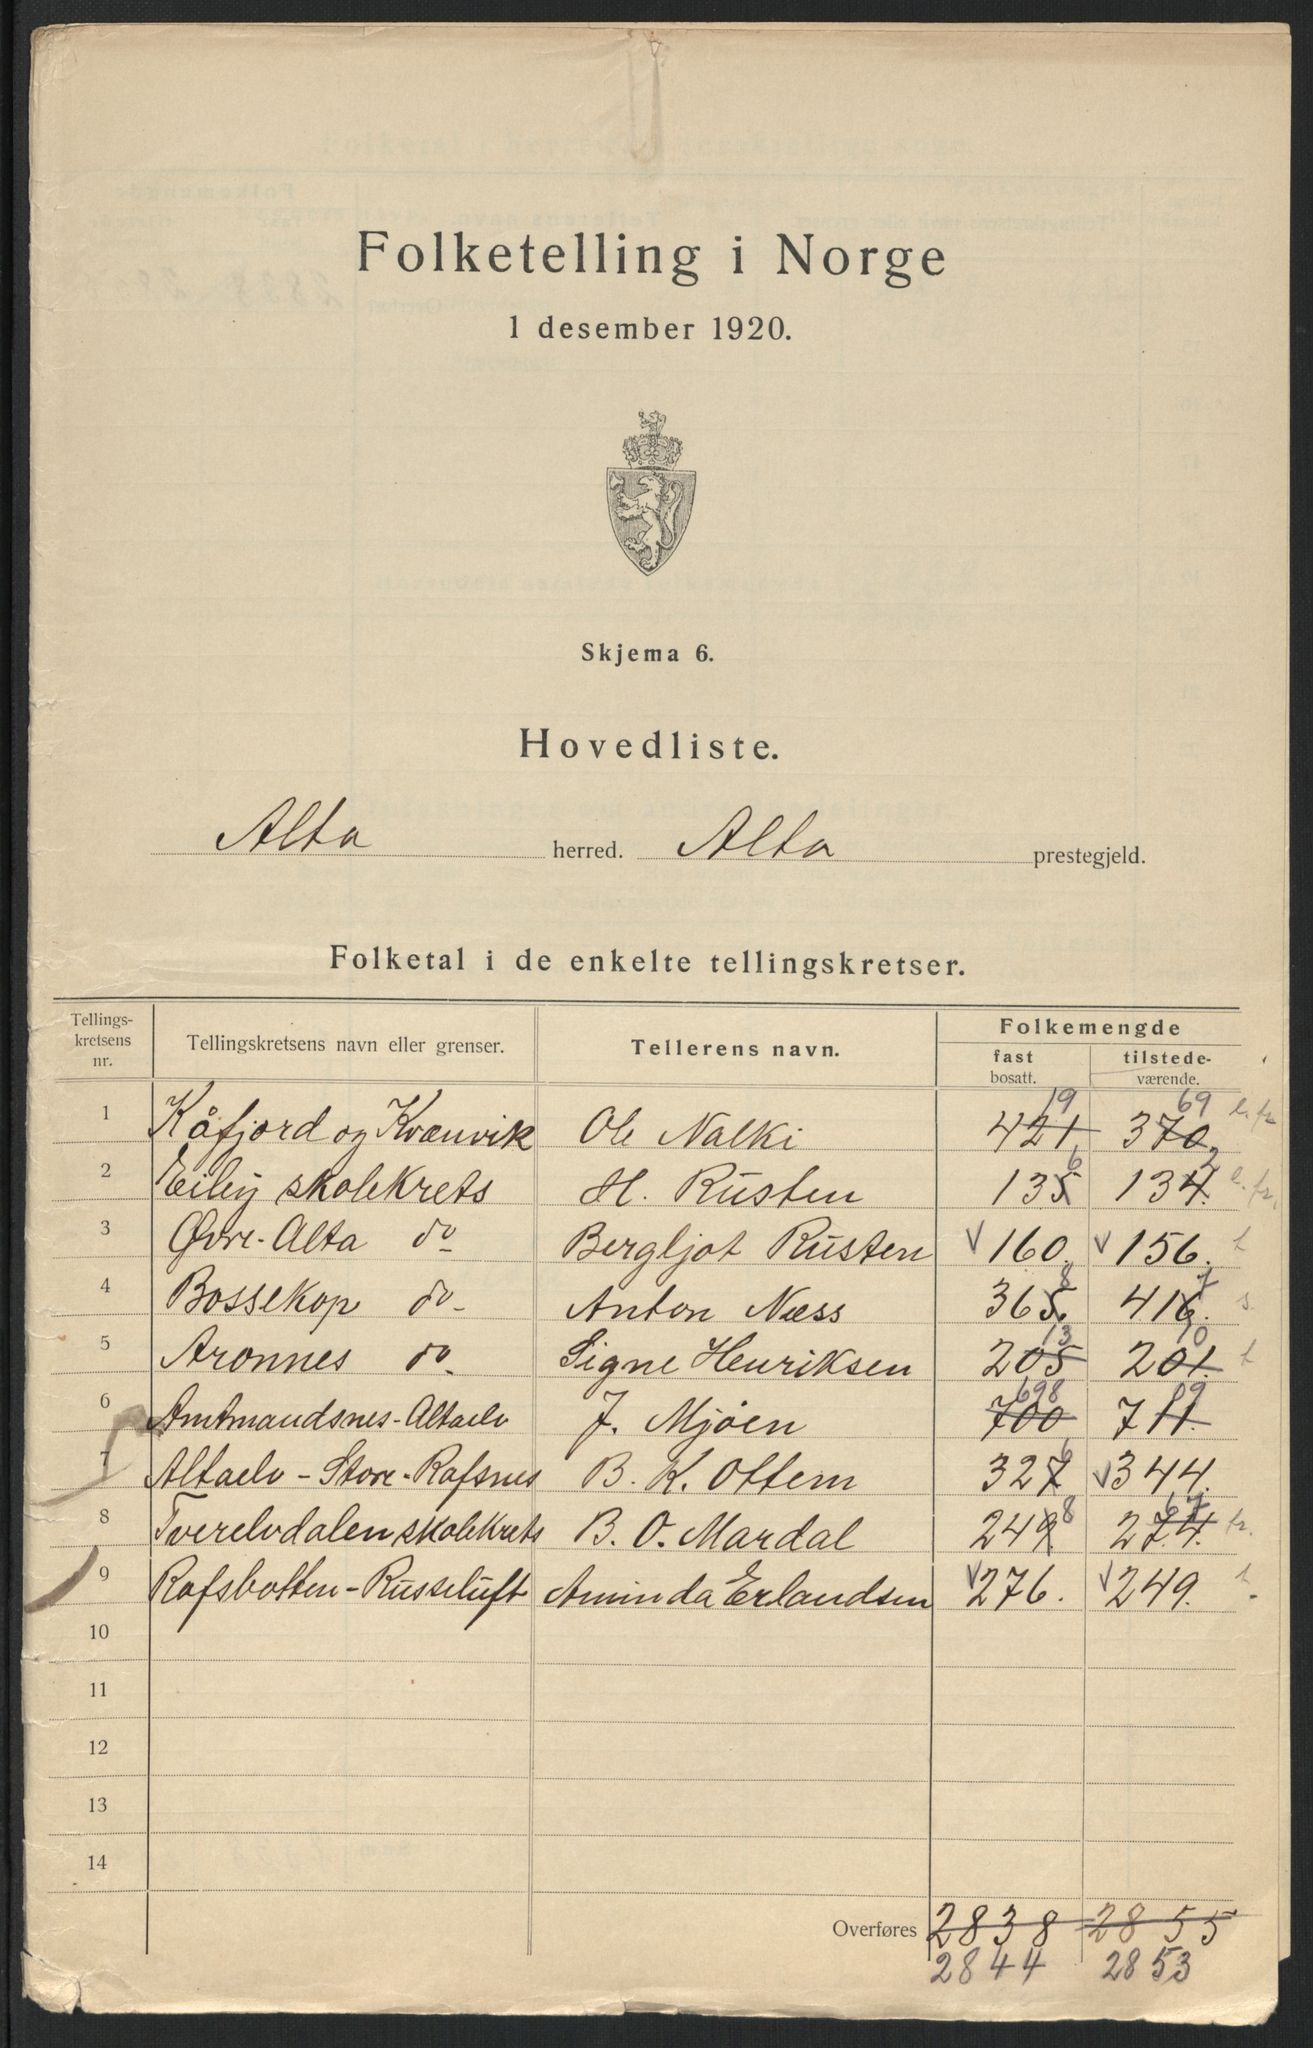 Folketelling i Norge
1 desember 1920.
Skjema 6.
Hovedliste.
Alta herred. Alta prestegjeld.
Folketal i de enkelte tellingskretser.
Tellings-
kretsens
nr.
Tellingskretsens navn eller grenser.
Tellerens navn.
Folkemengde
fast
bosatt.
tilstede-
værende.
19 69
1 Kåfjord og Kvænvik Ole Nalki 421 370 l. fr
6 2
2 Eiby skolekrets H. Rüsten 135 134. l. fr.
3 Øvre-Alta do V 160. V 156. t
8 7
4 Bossekop do Anton Næss 365. 416. s
Bergljot Rüsten
13 10
5 Aronnes do Signe Henriksen 205 201. t
698 09
6 Amtmandsnes-Altaelv J. Mjöen 700 711.
6
7 Altaelv - Store-Rafsnes B. K. Ottem 327 V 344.
8 67
8 Tverelvdalen skolekrets B. O. Mardal 249 274. fr.
9 Rafsbotten - Russeluft Aminda Erlandsen V 276. V 249. t.
10
11
12
13
14
Overføres 2838 2855
2844 2853